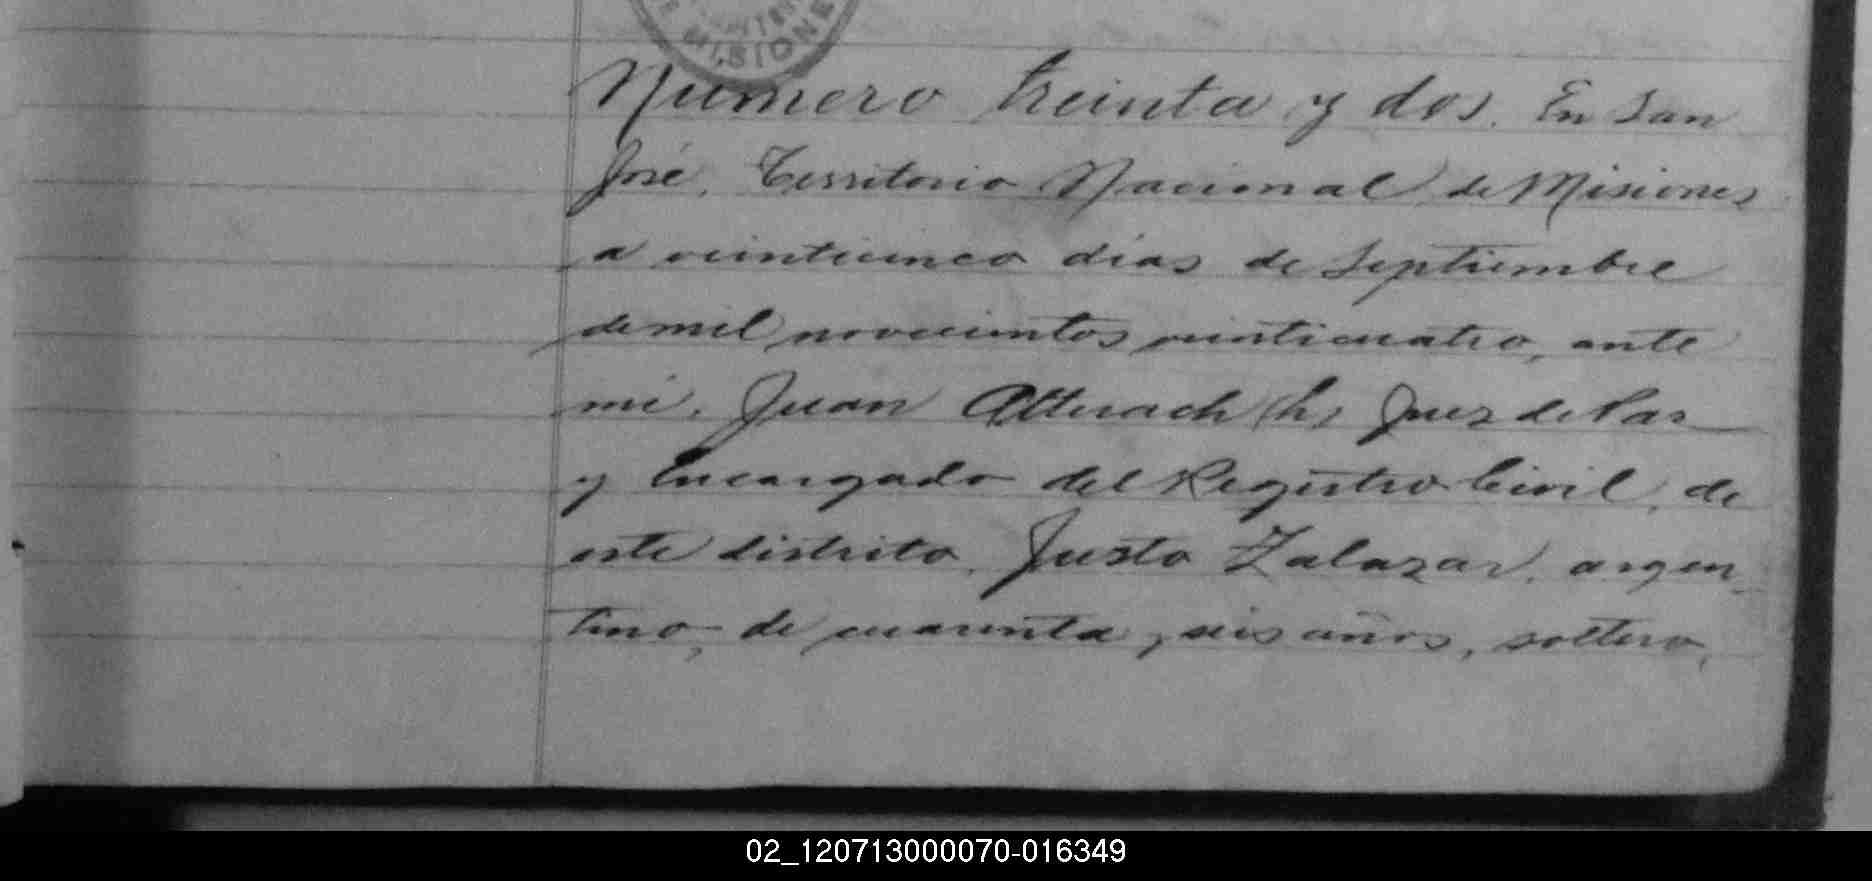 MISIONE
Numero treinta y dos. En San
José, Territorio Nacional de Misiones
a veinticinco dias de Septiembre
de mil novecientos veinticuatro, ante
mi, Juan Alterach (h) Juez de Paz
y Encargado del Registro Civil, de
este distrito, Justo Zalazar, argen-
tino, de cuarenta y seis años, soltero,
02_120713000070-016349